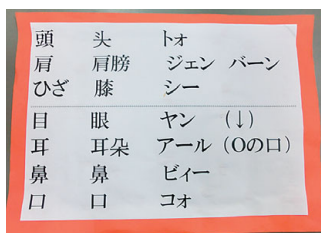 頭 头 トォ
肩 肩膀 ジェン バーン
ひざ 膝 シー
目 眼 ヤン (↓)
耳 耳朵 アール (Oの口)
鼻 鼻 ビィー
口 口 コォ